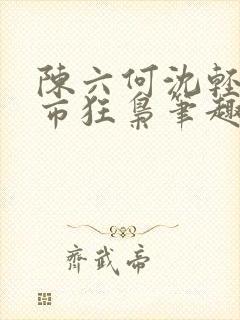 陳六何沈輕
市狂梟筆趣
齊武帝